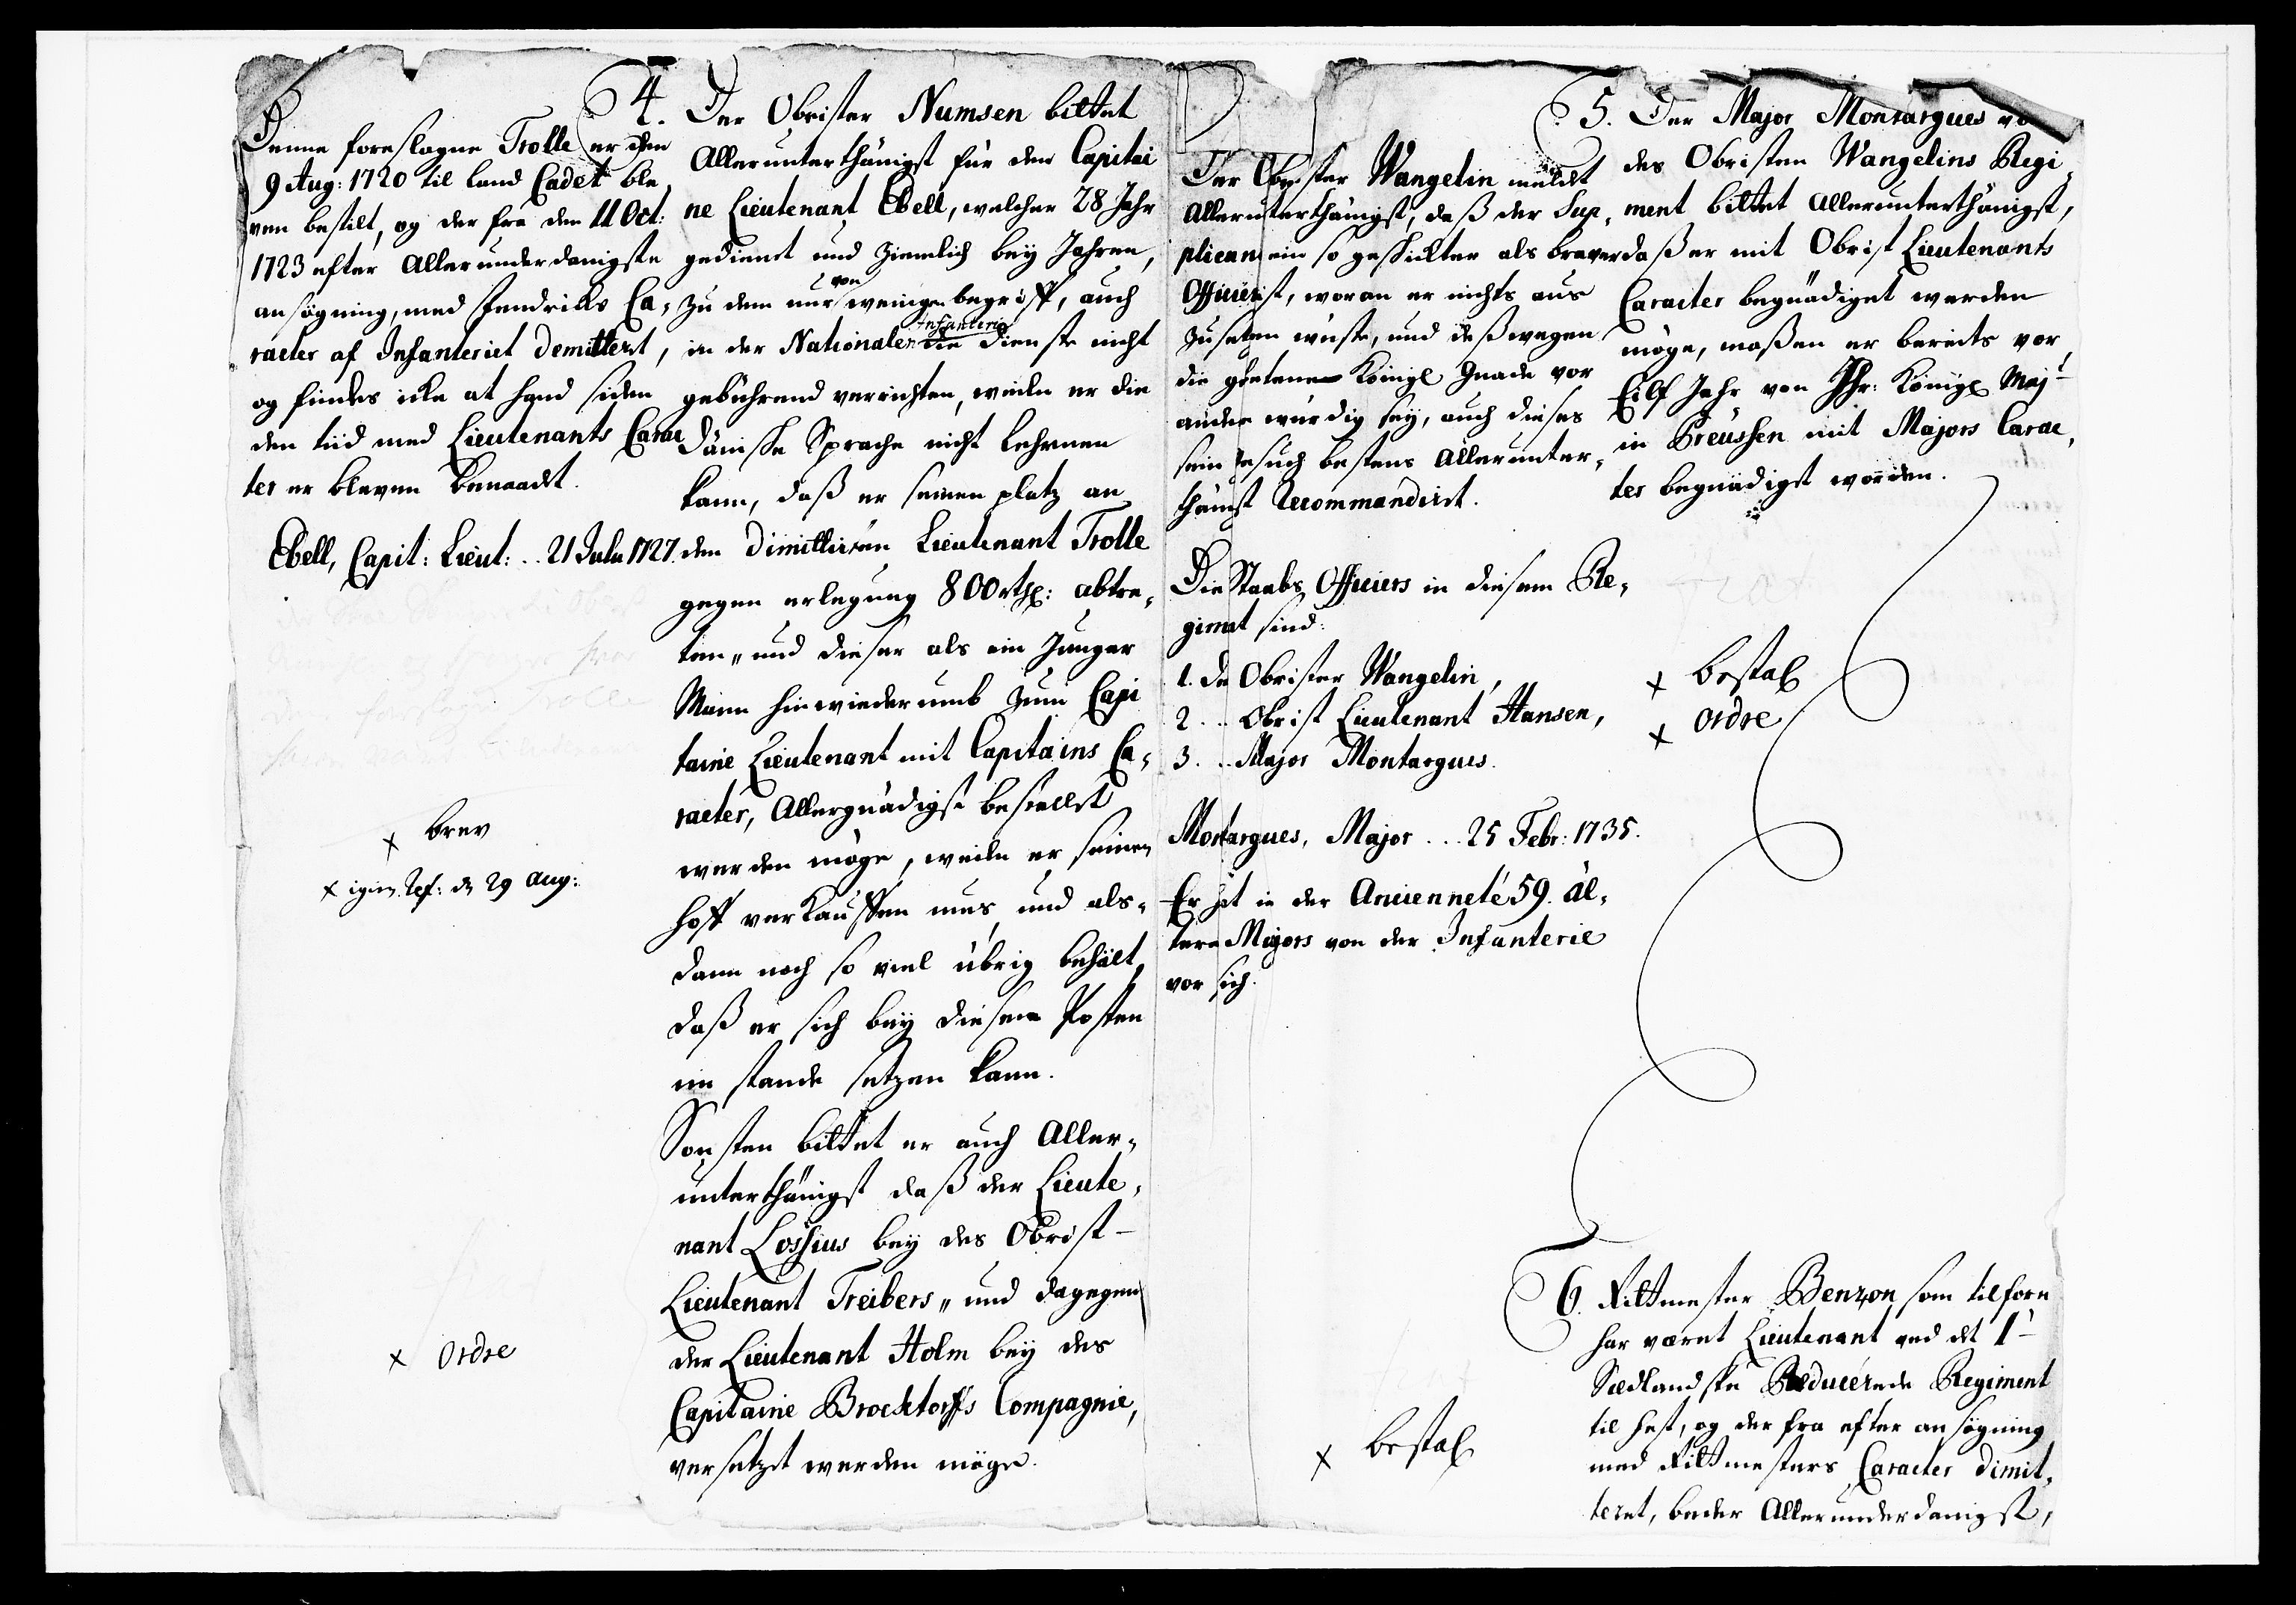 Denne foreslagne Trolle er den
9 Aug: 1720 til land Cadet ble,
ven bestilt, og der fra den 11 Oct:
1723 efter Allerunderdanigste
ansøgning, med Fendriks Ca,
racter af Infanteriet demittert,
og findes icke at hand siden
den tiid med Lieutenants Carac,
ter er bleven benaadt.
Ebell, Capit: Lieut: .. 21 Julii 1727.
x brev
x den 29 Aug:
x Ordre
4. Der Obrister Numsen bittet
Allerunterthänigst für den Capitai
ne Lieutenant Ebell, welcher 28 Jahr
gedient und ziemlich bey Jahren,
zu dem nur von wenigen begriff, auch
in der Nationalen Infanterie die Dienste nicht
gebührend verrichten, weiln er die
Dänische Sprache nicht lehrnen
kann, daß er seinen platz an
den dimittirten Lieutenant Trolle
gegen erlegung 800 rthl: abtre,
ten, und dieser als ein Junger
Mann hinwiederumb zum Capi
taine Lieutenant mit Capitains Ca,
racter, Allergnädigst bestellet
werden möge, weiln er seinen
hoff verkauffen mus, und als,
dann noch so viel übrig behält,
daß er sich bey diesen Posten
im stande setzen kann.
Sonsten bittet er auch Aller,
unterthänigst daß der Lieute,
nant Lossius bey des Obrist-
Lieutenant Treibers, und dagegen
der Lieutenant Holm bey des
Capitaine Brocktorffs Compagnie,
versetzet werden möge.
Der Obrister Wangelin meldet
Allerunterthänigst, daß der Sup,
plicant ein so geschickter als braver
Officier ist, woran er nichts aus
zusetzen wüste, und deßwegen
die gebetene Königl Gnade vor
andere würdig sey, auch dieses
sein gesuch bestens Allerunter,
thänigst Recommandirt.
Die Staabs Officiers in diesem Re,
giment sind:
1. Der Obrister Wangelin,
2 .. Obrist Lieutenant Hansen,
3 .. Major Montargues.
Montargues, Major ... 25 Febr: 1735.
Er hat in der Ancienneté 59. äl,
tere Majors von der Infanterie
vor sich.
x bestal
5. Der Major Montargues
des Obristen Wangelins Regi,
ment bittet Allerunterthänigst,
daß er mit Obrist Lieutenants
Caracter begnädiget werden
möge, maßen er bereits vor
Eilf Jahr von Ihr: Königl Majt
in Preussen mit Majors Carac,
ter begnädigst worden.
x bestal
x Ordre
6. Rittmester Benzon, som tilforn
har været Lieutenant ved det 1te
Siedlandske Reducerede Regiment
til hest, og der fra efter ansøgning
med Rittmesters Caracter dimit,
teret, beder Allerunderdanigst,